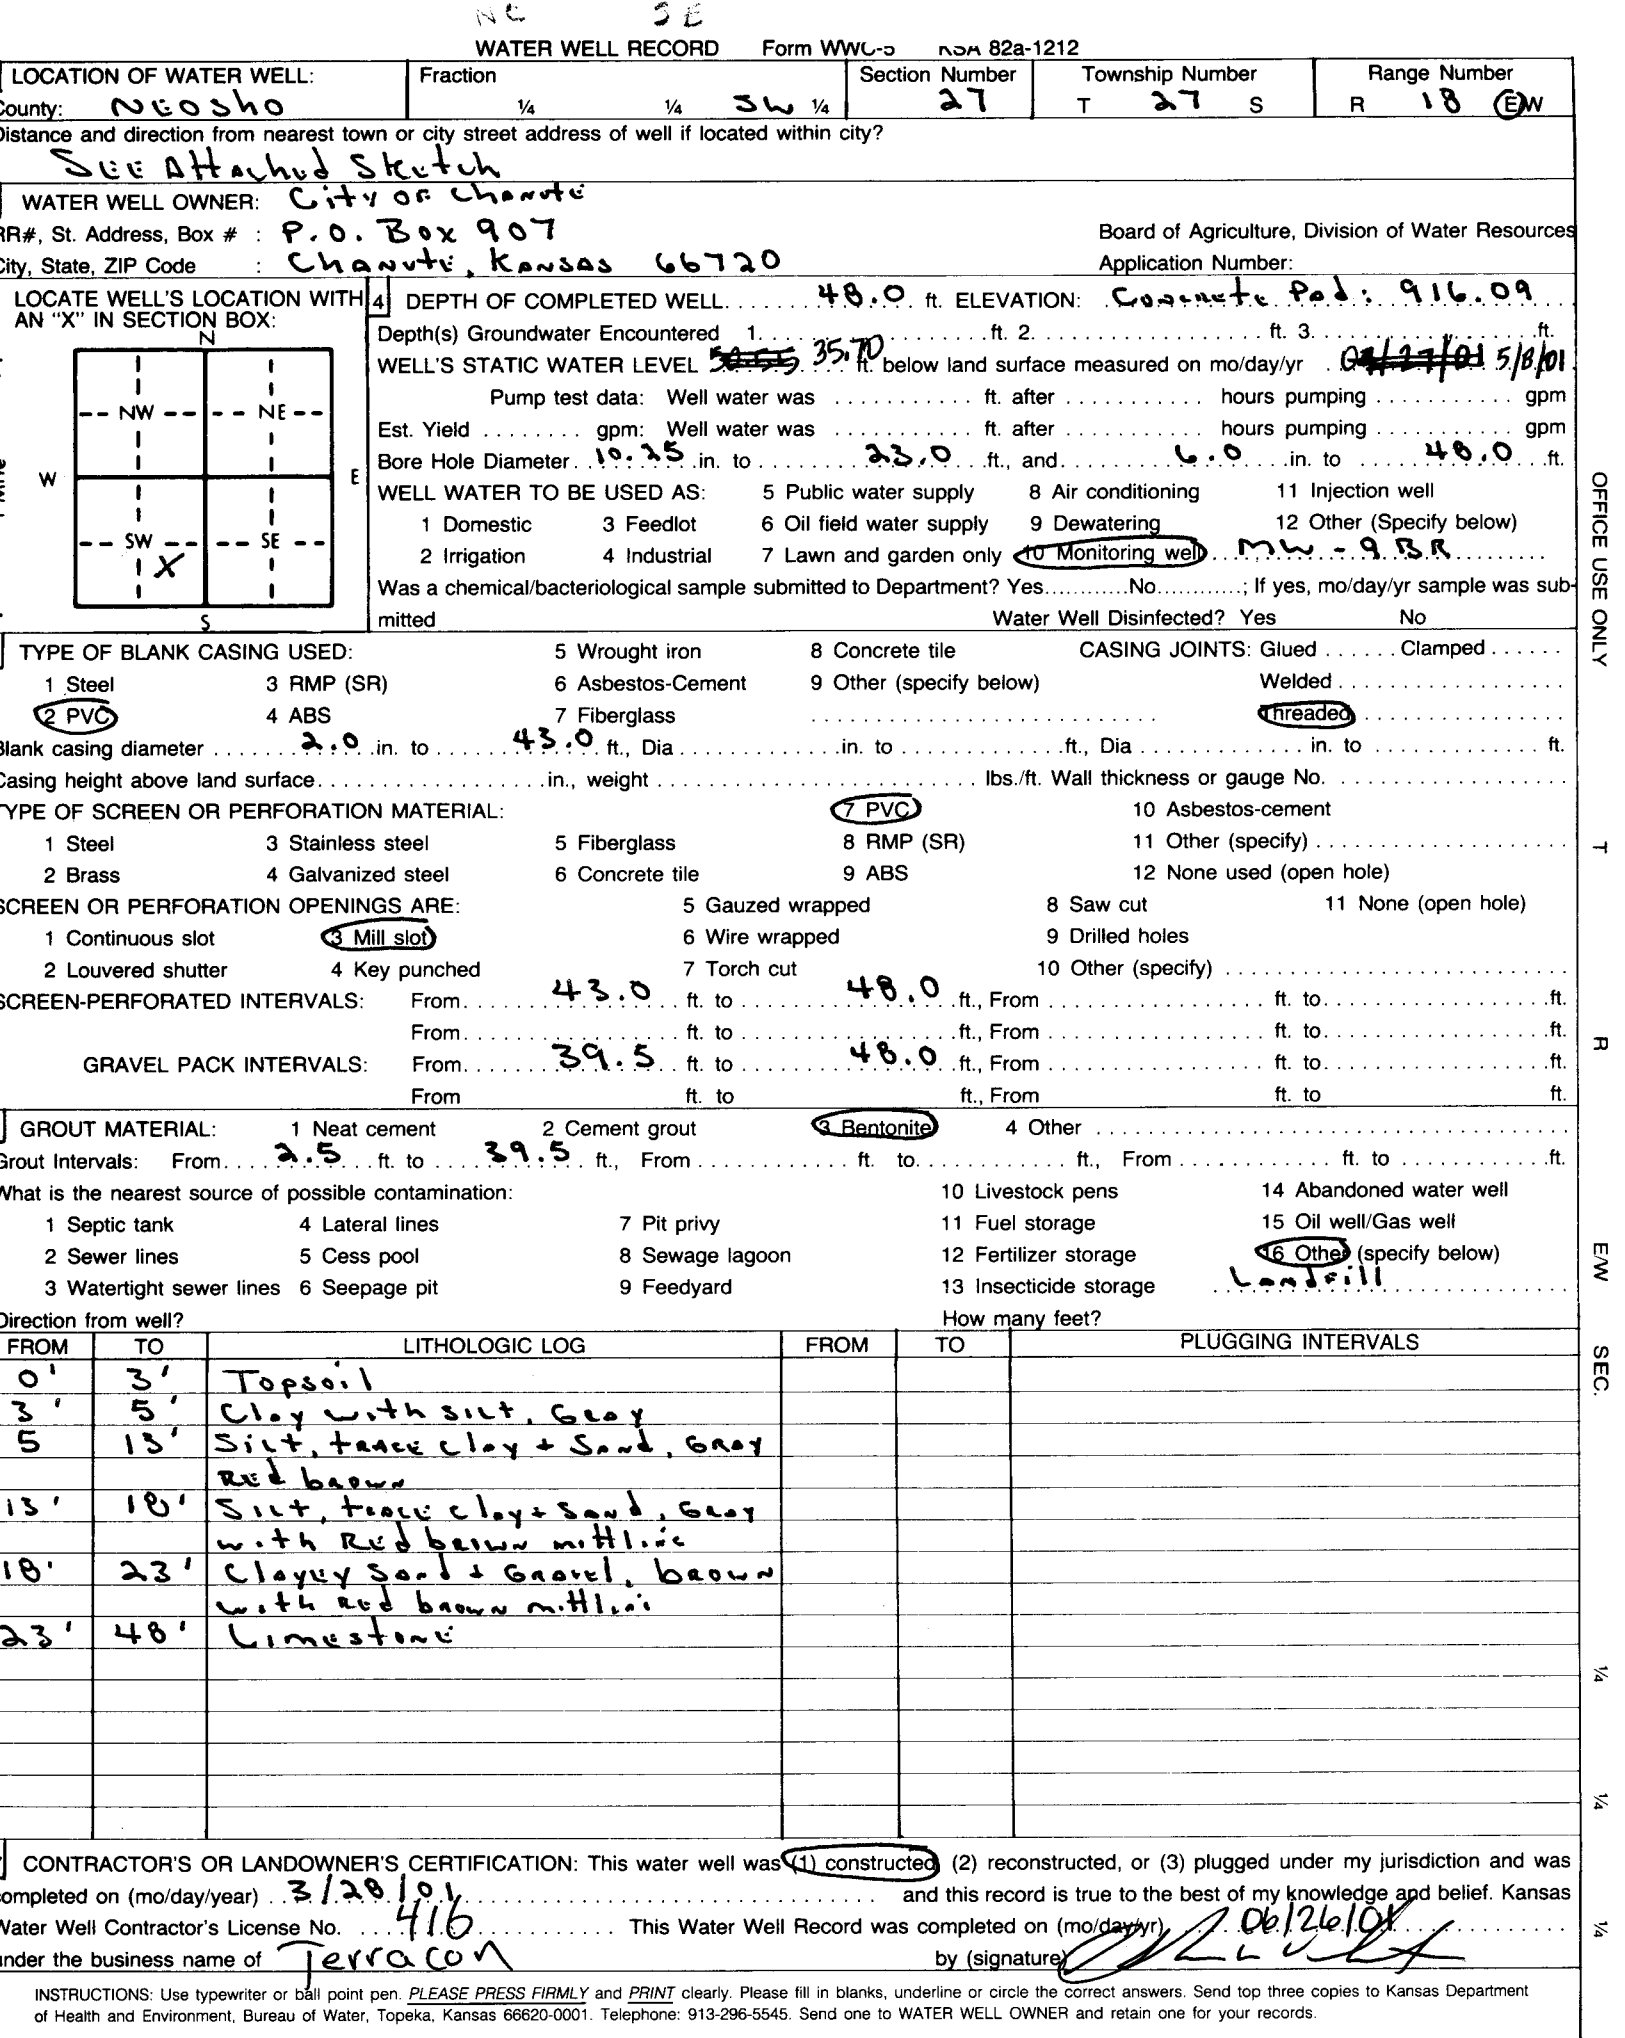 NE SE
WATER WELL RECORD Form WWC-5 KSA 82a-1212
LOCATION OF WATER WELL: Fraction Section Number Township Number Range Number
County: Neosho ¼ ¼ SW ¼ 27 T 27 S R 18 E W
Distance and direction from nearest town or city street address of well if located within city?
See Attached Sketch
WATER WELL OWNER: City of Chanute
RR#, St. Address, Box # : P.O. Box 907 Board of Agriculture, Division of Water Resources
City, State, ZIP Code : Chanute, Kansas 66720 Application Number:
LOCATE WELL'S LOCATION WITH AN "X" IN SECTION BOX:
N
NW NE
W E
SW SE
X
S
4 DEPTH OF COMPLETED WELL 48.0 ft. ELEVATION: Concrete Pad: 916.09
Depth(s) Groundwater Encountered 1. ft. 2. ft. 3. ft.
WELL'S STATIC WATER LEVEL 35.70 ft. below land surface measured on mo/day/yr 5/8/01
Pump test data: Well water was ft. after hours pumping gpm
Est. Yield gpm: Well water was ft. after hours pumping gpm
Bore Hole Diameter 10.25 in. to 23.0 ft., and 6.0 in. to 48.0 ft.
WELL WATER TO BE USED AS: 5 Public water supply 8 Air conditioning 11 Injection well
1 Domestic 3 Feedlot 6 Oil field water supply 9 Dewatering 12 Other (Specify below)
2 Irrigation 4 Industrial 7 Lawn and garden only 10 Monitoring well MW-9BR
Was a chemical/bacteriological sample submitted to Department? Yes No ; If yes, mo/day/yr sample was sub-
mitted Water Well Disinfected? Yes No
TYPE OF BLANK CASING USED: 5 Wrought iron 8 Concrete tile CASING JOINTS: Glued Clamped
1 Steel 3 RMP (SR) 6 Asbestos-Cement 9 Other (specify below) Welded
2 PVC 4 ABS 7 Fiberglass Threaded
Blank casing diameter 2.0 in. to 43.0 ft., Dia in. to ft., Dia in. to ft.
Casing height above land surface in., weight lbs./ft. Wall thickness or gauge No.
TYPE OF SCREEN OR PERFORATION MATERIAL: 7 PVC 10 Asbestos-cement
1 Steel 3 Stainless steel 5 Fiberglass 8 RMP (SR) 11 Other (specify)
2 Brass 4 Galvanized steel 6 Concrete tile 9 ABS 12 None used (open hole)
SCREEN OR PERFORATION OPENINGS ARE: 5 Gauzed wrapped 8 Saw cut 11 None (open hole)
1 Continuous slot 3 Mill slot 6 Wire wrapped 9 Drilled holes
2 Louvered shutter 4 Key punched 7 Torch cut 10 Other (specify)
SCREEN-PERFORATED INTERVALS: From 43.0 ft. to 48.0 ft., From ft. to ft.
From ft. to ft., From ft. to ft.
GRAVEL PACK INTERVALS: From 39.5 ft. to 48.0 ft., From ft. to ft.
From ft. to ft., From ft. to ft.
GROUT MATERIAL: 1 Neat cement 2 Cement grout 3 Bentonite 4 Other
Grout Intervals: From 2.5 ft. to 39.5 ft., From ft. to ft., From ft. to ft.
What is the nearest source of possible contamination: 10 Livestock pens 14 Abandoned water well
1 Septic tank 4 Lateral lines 7 Pit privy 11 Fuel storage 15 Oil well/Gas well
2 Sewer lines 5 Cess pool 8 Sewage lagoon 12 Fertilizer storage 16 Other (specify below)
3 Watertight sewer lines 6 Seepage pit 9 Feedyard 13 Insecticide storage Landfill
Direction from well? How many feet?
FROM TO LITHOLOGIC LOG FROM TO PLUGGING INTERVALS
0' 3' Topsoil
3' 5' Clay with silt, Gray
5 13' Silt, trace clay + Sand, Gray
Red brown
13' 18' Silt, trace clay + Sand, Gray
with Red brown mottling
18' 23' Clayey Sand + Gravel, brown
with Red brown mottling
23' 48' Limestone
CONTRACTOR'S OR LANDOWNER'S CERTIFICATION: This water well was (1) constructed, (2) reconstructed, or (3) plugged under my jurisdiction and was
completed on (mo/day/year) 3/28/01 and this record is true to the best of my knowledge and belief. Kansas
Water Well Contractor's License No. 416 This Water Well Record was completed on (mo/day/yr) 06/26/01
under the business name of Terracon by (signature)
INSTRUCTIONS: Use typewriter or ball point pen. PLEASE PRESS FIRMLY and PRINT clearly. Please fill in blanks, underline or circle the correct answers. Send top three copies to Kansas Department
of Health and Environment, Bureau of Water, Topeka, Kansas 66620-0001. Telephone: 913-296-5545. Send one to WATER WELL OWNER and retain one for your records.
OFFICE USE ONLY
T
R
E/W
SEC.
¼
¼
¼